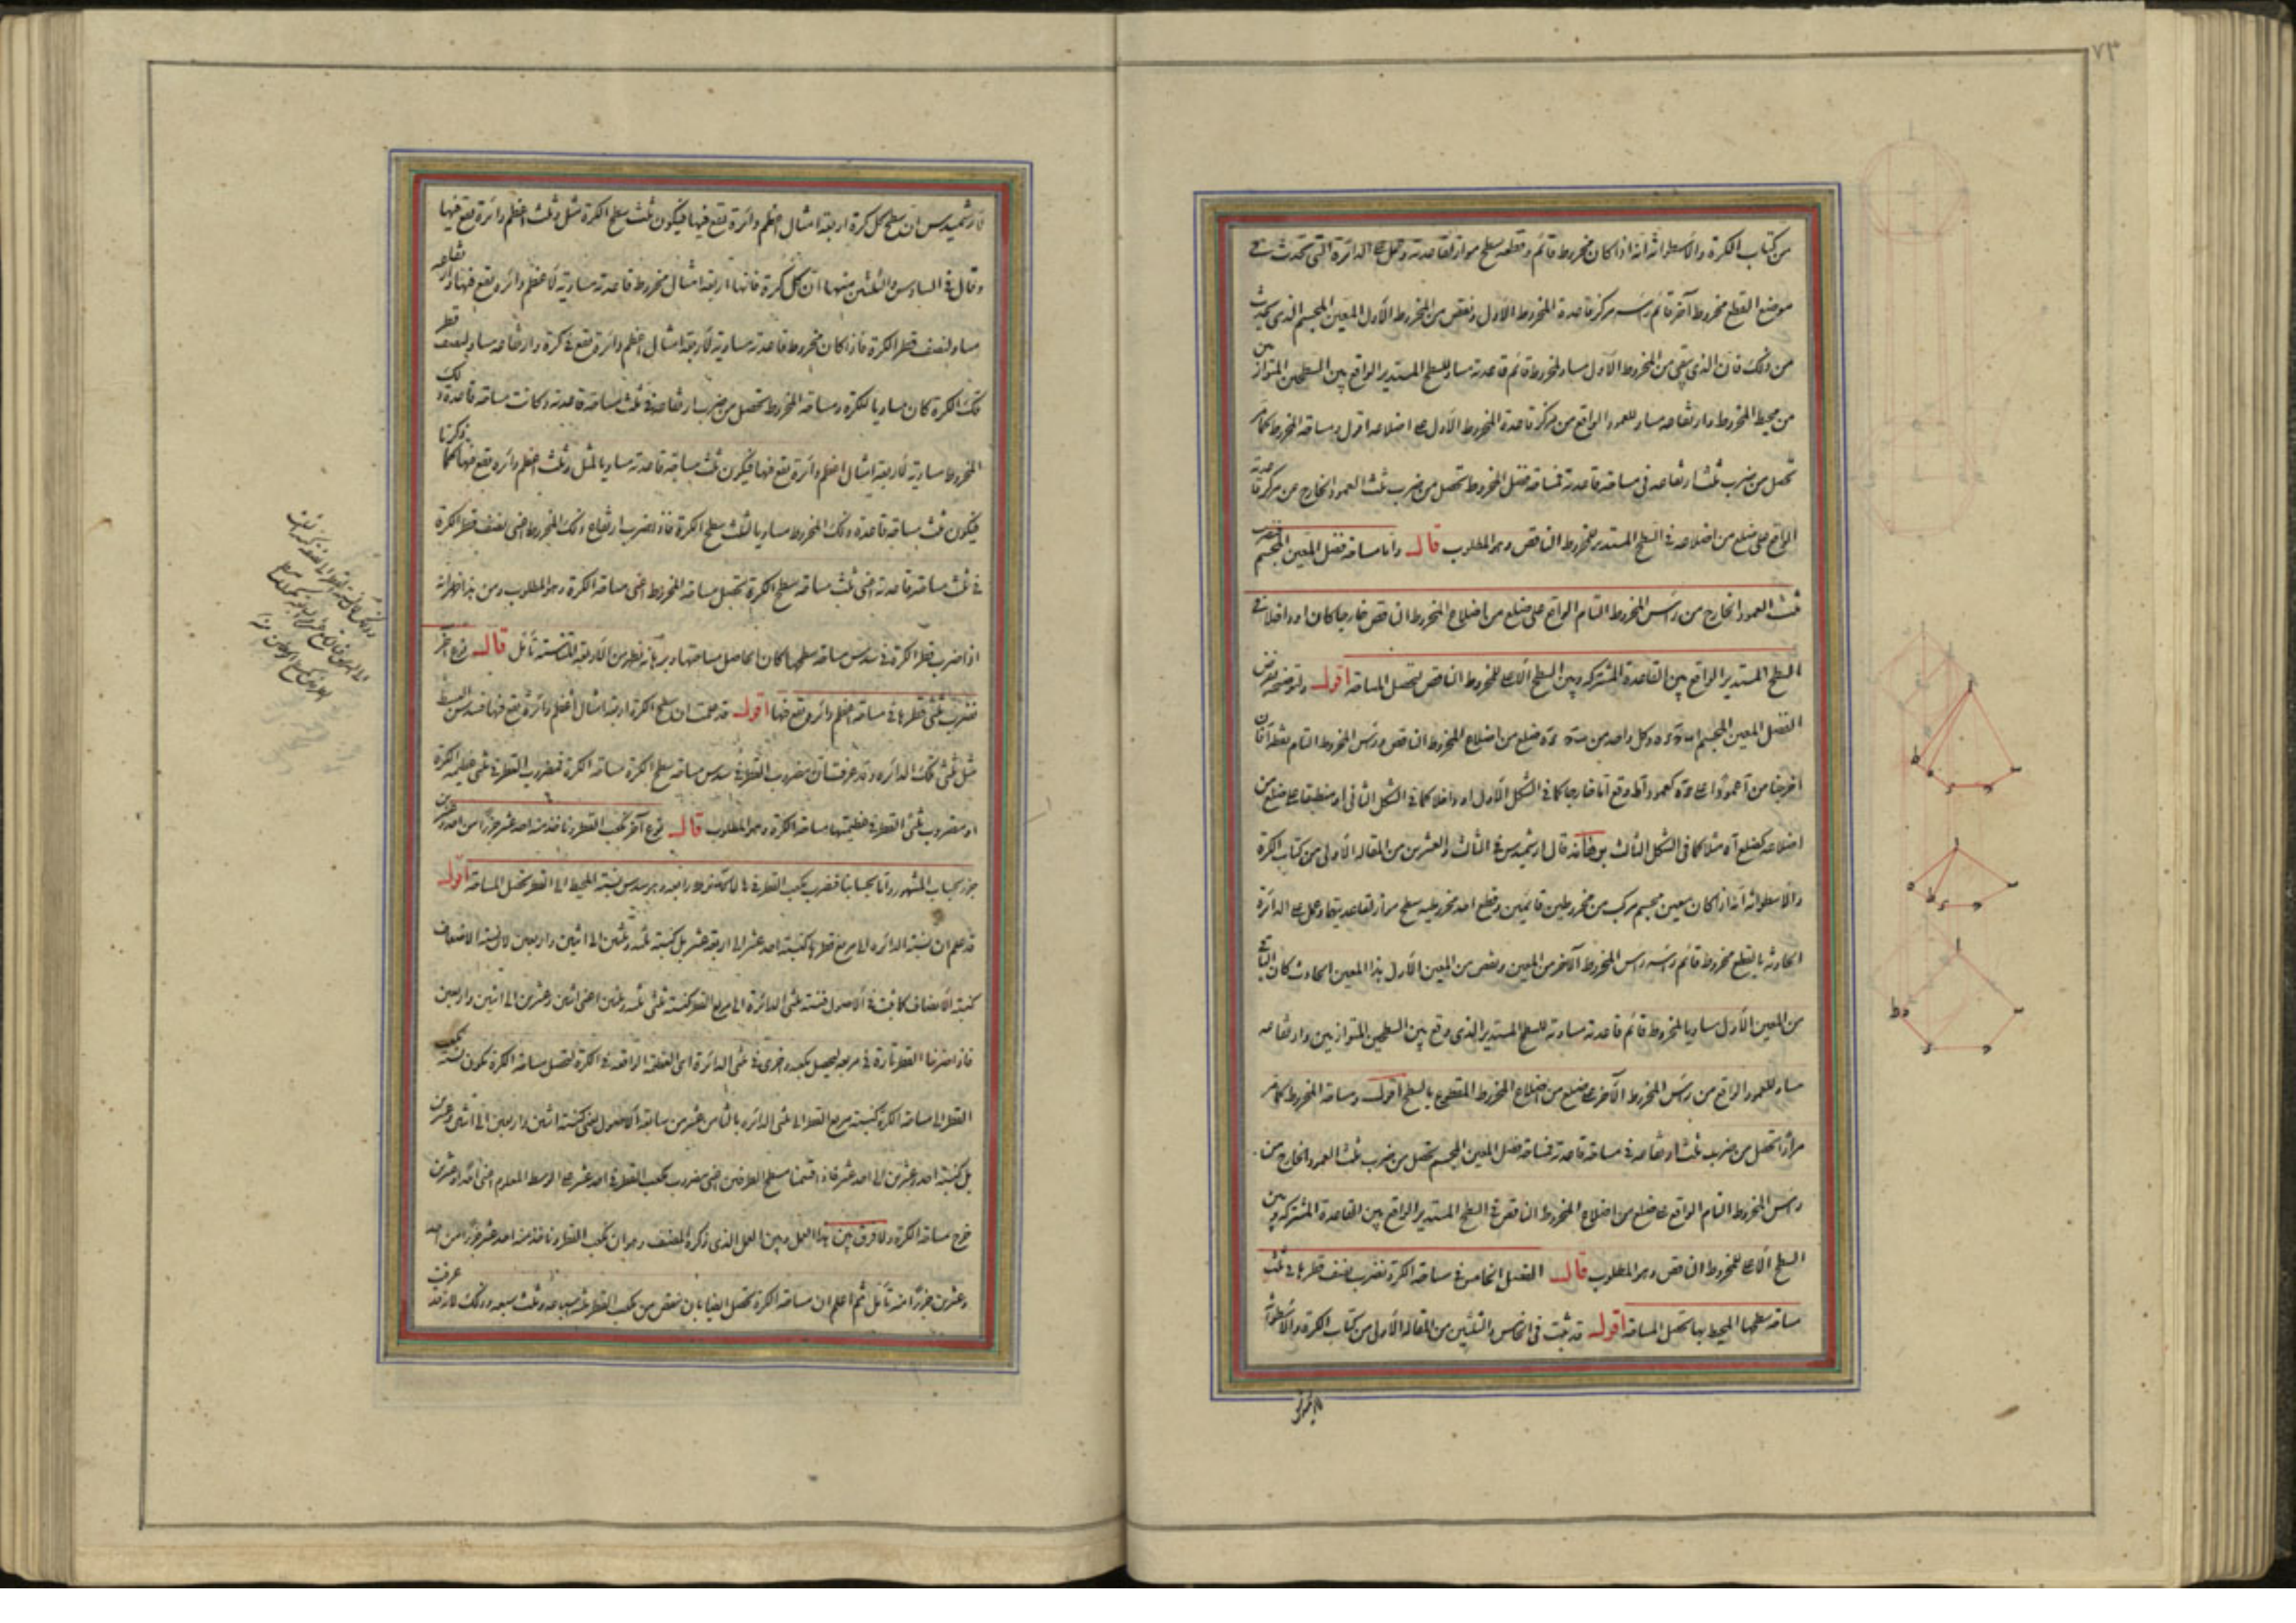 ٧٣
من كتاب الكرة والأسطوانة أنه اذا كان مخروط قائم وقطعه سطح مواز لقاعدته وعمل على الدائرة التي تحدث في
موضع القطع مخروط آخر قائم رأسه مركز قاعدة المخروط الأول ونقص من المخروط الأول المعين المجسم الذي يحدث
من ذلك فان الذي يبقى من المخروط الأول مساو لمخروط قائم قاعدته مساو للسطح المستدير الواقع بين السطحين المتوازيين
من محيط المخروط وارتفاعه مساو للعمود الواقع من مركز قاعدة المخروط الأول على اضلاعه اقول ومساحة المخروط كما مر
تحصل من ضرب ثلث ارتفاعه في مساحة قاعدته فمساحة فضل المخروط تحصل من ضرب ثلث العمود الخارج عن مركز قاعدته
الواقع على ضلع من اضلاعه في السطح المستدير للمخروط الناقص وهو المطلوب قال واما مساحة فضل المعين المجسم فنضرب
ثلث العمود الخارج من رأس المخروط التام الواقع على ضلع من اضلاع المخروط الناقص خارجا كان او داخلا في
السطح المستدير الواقع بين القاعدة المشتركة وبين السطح الأعلى للمخروط الناقص ليحصل المساحة اقول ولتوضيحه نفرض
الفضل المعين المجسم وكل واحد من ضلع من اضلاع المخروط الناقص ورأس المخروط التام نقطة آ فان
اخرجنا من آ عمودا على كعمود آط وقع اما خارجا كما في الشكل الأول او داخلا كما في الشكل الثاني او منطبقا على ضلع من
اضلاعه كضلع آه مثلا كما في الشكل الثالث برهانه قال ارشميدس في الثالث والعشرين من المقالة الأولى من كتاب الكرة
والأسطوانة أنه اذا كان معين مجسم مركب من مخروطين قائمين وقطع احد مخروطيه سطح مواز لقاعدتيهما وعمل على الدائرة
الحادثة بالقطع مخروط قائم رأسه رأس المخروط الآخر من المعين ونقص من المعين الأول هذا المعين الحادث كان الباقي
من المعين الأول مساويا لمخروط قائم قاعدته مساوية للسطح المستدير الذي وقع بين السطحين المتوازيين وارتفاعه
مساو للعمود الواقع من رأس المخروط الآخر على ضلع من اضلاع المخروط المقطوع بالسطح اقول ومساحة المخروط كما مر
مرارا تحصل من ضرب ثلث ارتفاعه في مساحة قاعدته فمساحة فضل المعين المجسم تحصل من ضرب ثلث العمود الخارج من
رأس المخروط التام الواقع على ضلع من اضلاع المخروط الناقص في السطح المستدير الواقع بين القاعدة المشتركة وبين
السطح الأعلى للمخروط الناقص وهو المطلوب قال الفصل الخامس في مساحة الكرة نضرب نصف قطرها في ثلث
مساحة سطحها المحيط بها تحصل المساحة اقول قد ثبت في الخامس والثلثين من المقالة الأولى من كتاب الكرة والأسطوانة
لأرشميدس ان سطح كل كرة اربعة امثال اعظم دائرة تقع فيها فيكون ثلث سطح الكرة مثل وثلث اعظم دائرة تقع فيها
وقال في السادس والثلثين منها ان كل كرة فانها اربعة امثال مخروط قاعدته مساوية لأعظم دائرة تقع فيها وارتفاعه
مساو لنصف قطر الكرة فاذا كان مخروط قاعدته مساوية لأربعة امثال اعظم دائرة تقع في كرة وارتفاعه مساو لنصف قطر
تلك الكرة كان مساويا للكرة ومساحة المخروط تحصل من ضرب ارتفاعه في ثلث مساحة قاعدته وكانت مساحة قاعدة ذلك
المخروط مساوية لأربعة امثال اعظم دائرة تقع فيها فيكون ثلث مساحة قاعدته مساويا لمثل وثلث اعظم دائرة تقع فيها كما ذكرنا
فيكون ثلث مساحة قاعدة ذلك المخروط مساويا لثلث سطح الكرة فاذا ضرب ارتفاع ذلك المخروط اعني نصف قطر الكرة
في ثلث مساحة قاعدته اعني ثلث مساحة سطح الكرة تحصل مساحة المخروط اعني مساحة الكرة وهو المطلوب ومن هذا ظهر انه
اذا ضرب قطر الكرة في سدس مساحة سطحها كان الحاصل مساحتها وبرهانه يظهر من الأربعة المتناسبة تأمل قال نوع آخر
نضرب ثلثي قطرها في مساحة اعظم دائرة تقع فيها اقول قد علمت ان سطح الكرة اربعة امثال اعظم دائرة تقع فيها فسدس السطح
مثل ثلثي تلك الدائرة وقد عرفت ان مضروب القطر في سدس مساحة سطح الكرة مساحة الكرة فمضروب القطر في ثلثي عظيمة الكرة
او مضروب ثلثي القطر في عظيمتها مساحة الكرة وهو المطلوب قال نوع آخر نكعب القطر وناخذ منه احد عشر جزءا من احد وعشرين
جزء بحساب المشهور واما بحسابنا فنضرب مكعب القطر في رابعة وهو سدس نسبة المحيط الى القطر تحصل المساحة اقول
قد علم ان نسبة الدائرة الى مربع قطرها كنسبة احد عشر الى اربعة عشر بل كنسبة ثلثة وثلثين الى اثنين واربعين لان نسبة الاضعاف
كنسبة الأضعاف كما ثبت في الأصول فنسبة ثلثي الدائرة الى مربع القطر كنسبة ثلثي ثلثة وثلثين اعني اثنين وعشرين الى اثنين واربعين
فاذا ضربنا القطر تارة في مربعه ليحصل مكعبه واخرى في ثلثي الدائرة اعني العظيمة الواقعة في الكرة لتحصل مساحة الكرة تكون نسبة مكعب
القطر الى مساحة الكرة كنسبة مربع القطر الى ثلثي الدائرة بالثامن عشر من سابعة الأصول اعني كنسبة اثنين واربعين الى اثنين وعشرين
بل كنسبة احد وعشرين الى احد عشر فاذا قسمنا مسطح الطرفين اعني مضروب مكعب القطر في احد عشر على الوسط المعلوم اعني احدا وعشرين
خرج مساحة الكرة ولا فرق بين هذا العمل وبين العمل الذي ذكره المصنف وهو ان نكعب القطر وناخذ منه احد عشر جزءا من احد
وعشرين جزءا منه تأمل ثم اعلم ان مساحة الكرة تحصل ايضا بان ننقص من مكعب القطر ثلثة اسباعه وثلث سبعه وذلك لانه قد عرفت